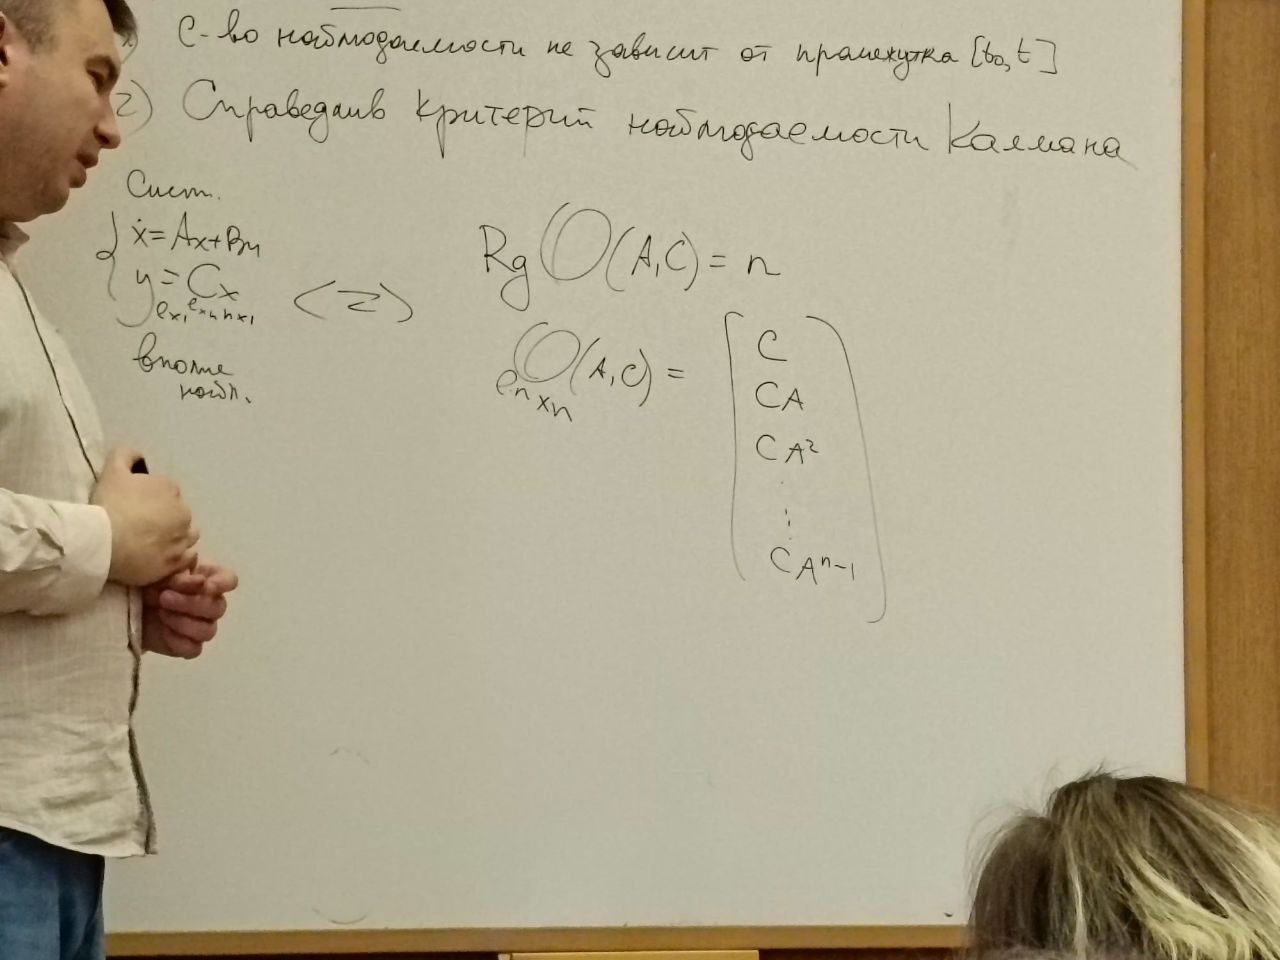 1) с-во наблюдаемости не зависит от промежутка [t₀, t]
2) Справедлив критерий наблюдаемости Калмана
Сист.
ẋ = Ax + Bu
y = Cx
ℓx1 ℓxn nx1
вполне
набл.
<=>
Rg O(A,C) = n
O(A,C) =
ℓn x n
C
CA
CA²
⋮
CAⁿ⁻¹